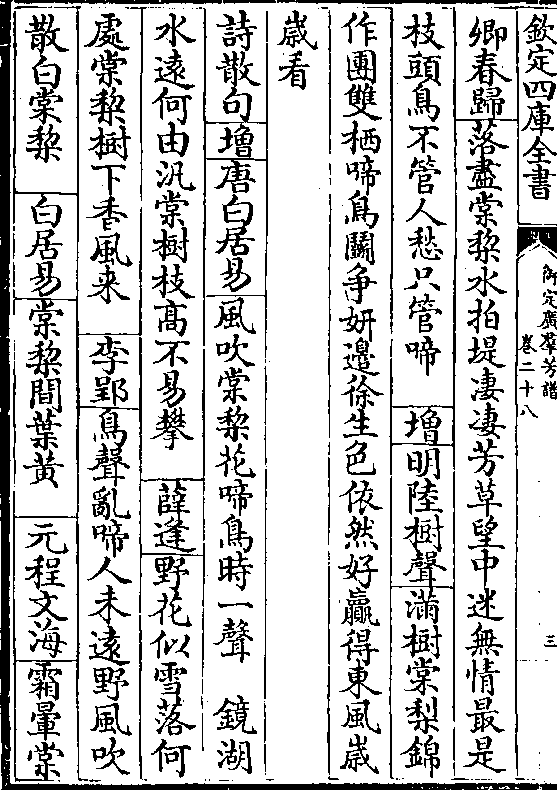 欽定四庫全書
御定廣羣芳譜
卷二十八
三
卿春歸落盡棠棃水拍堤凄凄芳草望中迷無情最是
枝頭鳥不管人愁只管啼　增明陸樹聲滿樹棠梨錦
作團雙栖啼鳥鬭争妍邉徐生色依然好贏得東風歲
歲看
詩散句增唐白居易風吹棠棃花啼鳥時一聲　鏡湖
水遠何由汎棠樹枝高不易攀　薛逢野花似雪落何
處棠棃樹下香風来　李郢鳥聲亂啼人未遠野風吹
散白棠棃　白居易棠棃間葉黄　元程文海霜暈棠